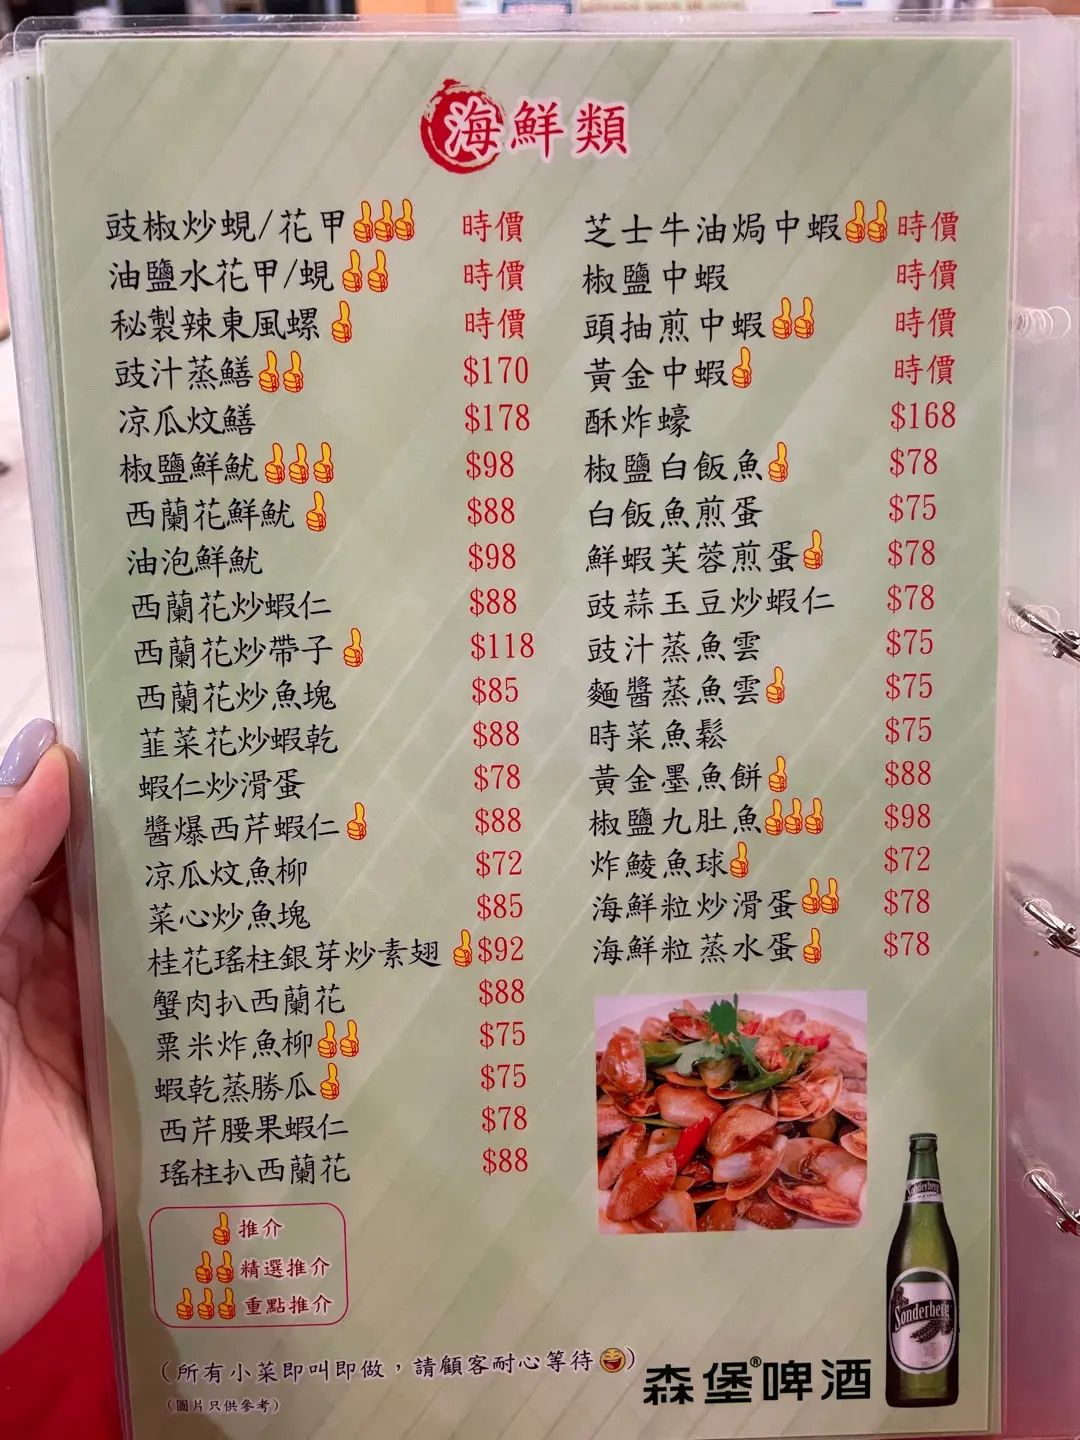 海鮮類
豉椒炒蜆/花甲 時價
油鹽水花甲/蜆 時價
秘製辣東風螺 時價
豉汁蒸鱔 $170
凉瓜炆鱔 $178
椒鹽鮮魷 $98
西蘭花鮮魷 $88
油泡鮮魷 $98
西蘭花炒蝦仁 $88
西蘭花炒帶子 $118
西蘭花炒魚塊 $85
韮菜花炒蝦乾 $88
蝦仁炒滑蛋 $78
醬爆西芹蝦仁 $88
凉瓜炆魚柳 $72
菜心炒魚塊 $85
桂花瑤柱銀芽炒素翅 $92
蟹肉扒西蘭花 $88
粟米炸魚柳 $75
蝦乾蒸勝瓜 $75
西芹腰果蝦仁 $78
瑤柱扒西蘭花 $88
芝士牛油焗中蝦 時價
椒鹽中蝦 時價
頭抽煎中蝦 時價
黃金中蝦 時價
酥炸蠔 $168
椒鹽白飯魚 $78
白飯魚煎蛋 $75
鮮蝦芙蓉煎蛋 $78
豉蒜玉豆炒蝦仁 $78
豉汁蒸魚雲 $75
麵醬蒸魚雲 $75
時菜魚鬆 $75
黃金墨魚餅 $88
椒鹽九肚魚 $98
炸鯪魚球 $72
海鮮粒炒滑蛋 $78
海鮮粒蒸水蛋 $78
推介
精選推介
重點推介
(所有小菜即叫即做，請顧客耐心等待😄)
(圖片只供參考)
森堡®啤酒
Sonderberg
Sonderberg